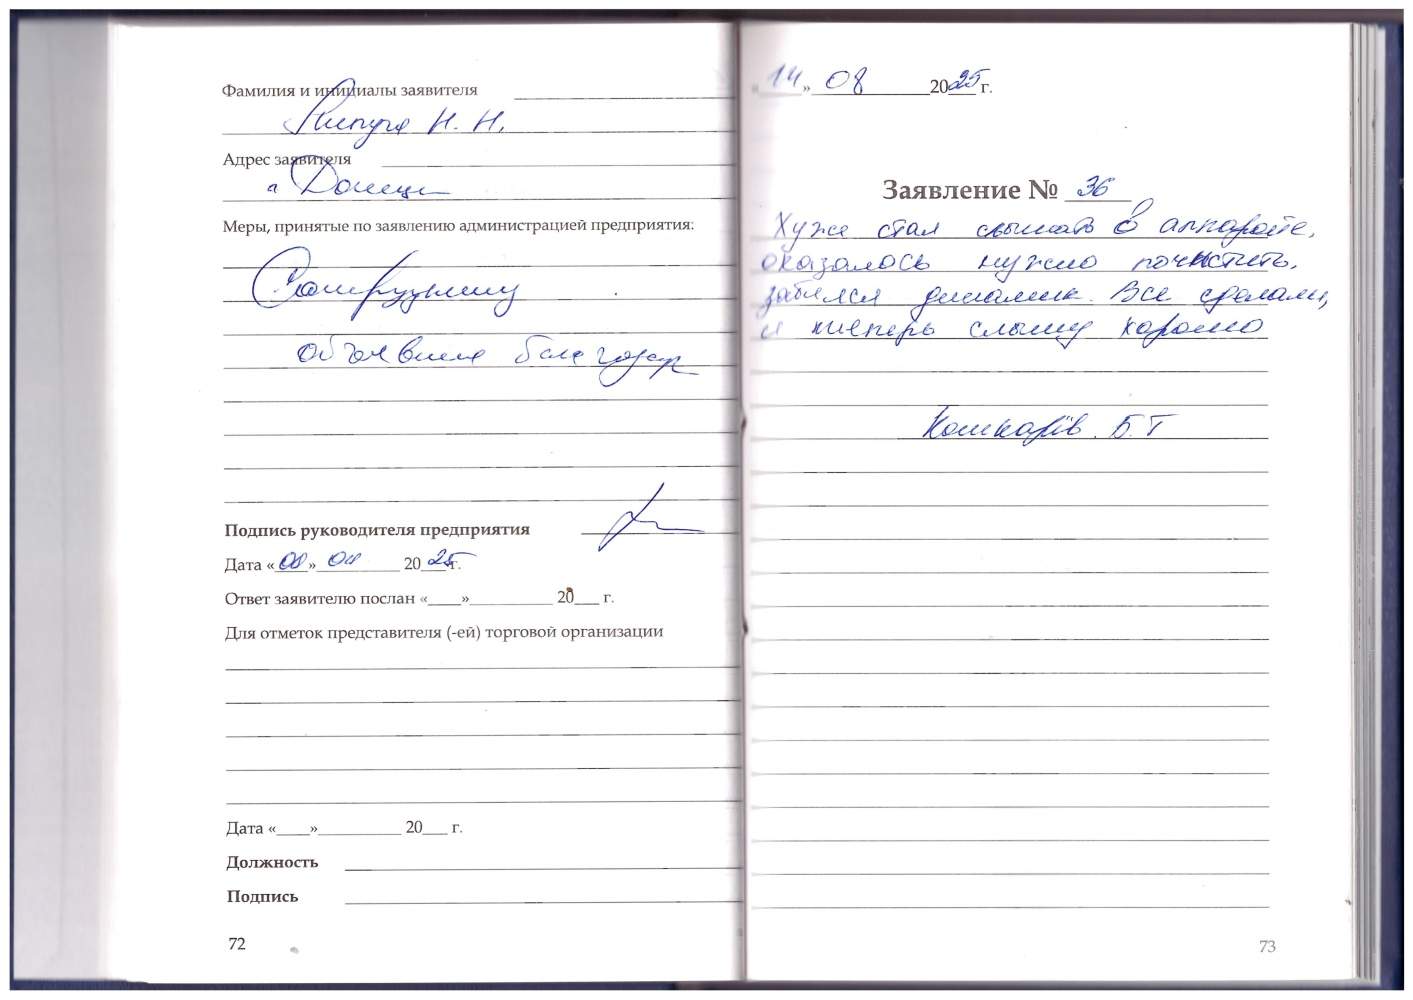 Фамилия и инициалы заявителя
Н. Н.
Адрес заявителя
г Донецк
Меры, принятые по заявлению администрацией предприятия:
Сотруднику
объявлена благодар
Подпись руководителя предприятия
Дата «08» 04 2025 г.
Ответ заявителю послан «____»__________ 20___ г.
Для отметок представителя (-ей) торговой организации
Дата «____»__________ 20___ г.
Должность
Подпись
72
«14» 08 2025 г.
Заявление № 36
Хуже стал слышать в аппарате,
оказалось нужно почистить,
забился динамик. Все сделали,
и теперь слышу хорошо
Кошкарёв. Б.Т
73